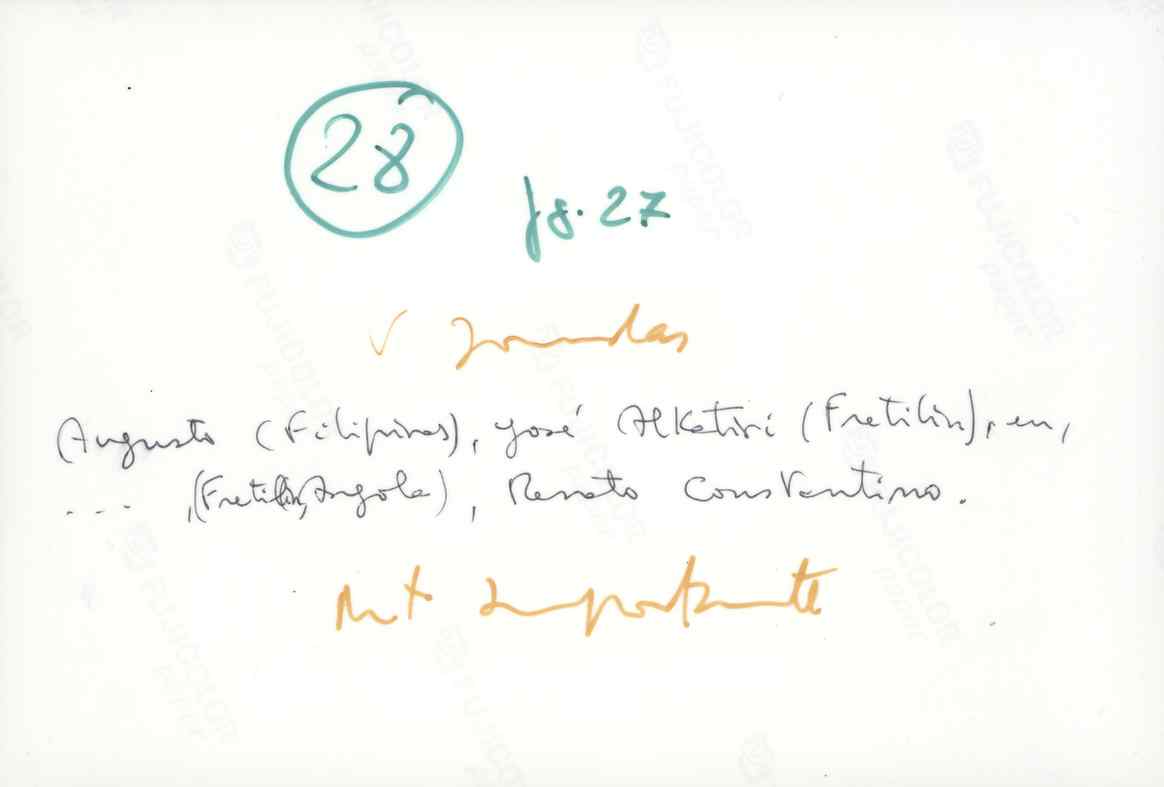 28
fg. 27
Augusto (Filipinas), José Alkatiri (Fretilin), eu,
... , (Fretilin, Angola), Renato Constantino.
Mtº Importante
FUJICOLOR
PAPER